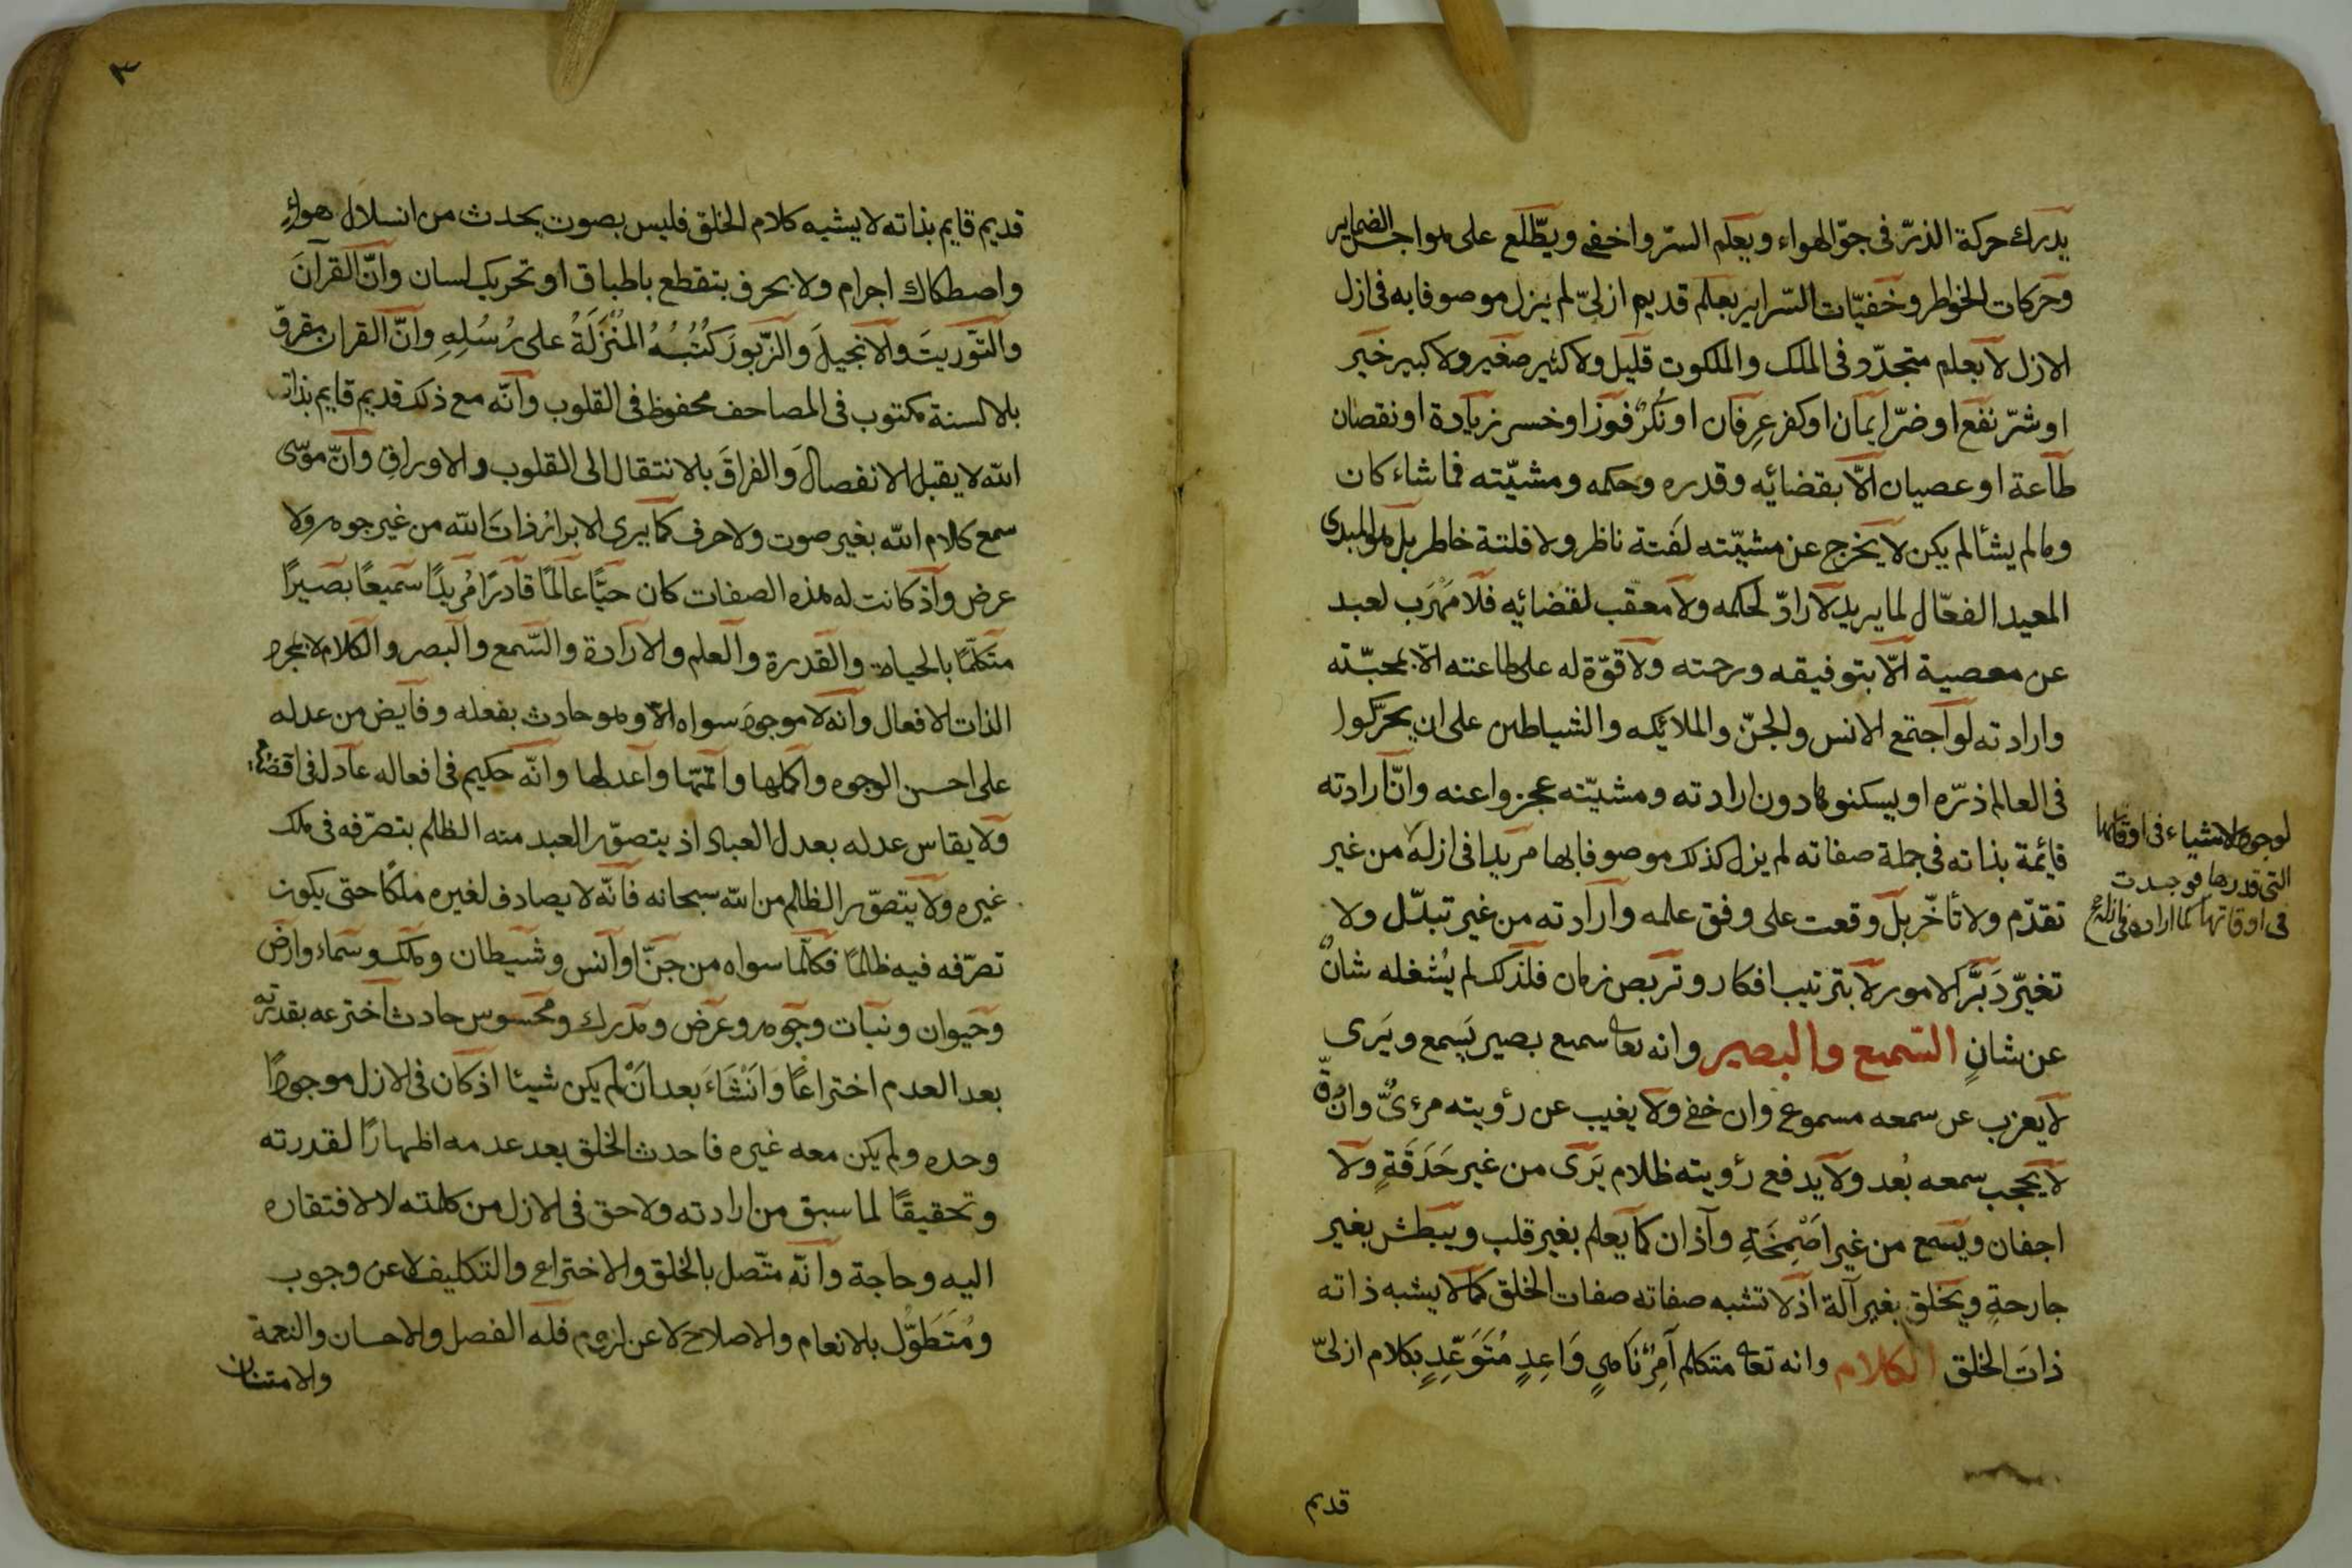 يدرك حركة الذرّ فى جوّ الهواء ويعلم السرّ واخفى ويطّلع على هواجس الضماير
وحركات الخواطر وخفيّات السّراير بعلم قديم ازلىّ لم يزل موصوفا به فى ازل
الازل لا بعلم متجدّد فى الملك والملكوت قليل ولا كثير صغير ولا كبير خير
او شرّ نفع او ضرّ ايمان او كفر عِرفان او نُكرٌ فوز او خسر زيادة او نقصان
طاعة او عصيان الّا بقضائِه وقدره وحكمه ومشيّته فما شاء كان
وما لم يشأ لم يكن لا يخرج عن مشيّته لَفتة ناظر ولا فلتة خاطر بل هو المبدى
المعيد الفعّال لما يريد لا رادّ لحكمه ولا معقّب لقضائِه فلا مَهْرَب لعبد
عن معصية الّا بتوفيقه ورحمته ولا قوّة له على طاعته الّا بمحبّته
وارادته لو اجتمع الانس والجنّ والملائِكه والشياطين على ان يحرّكوا
فى العالم ذرّه او يسكنوها دون ارادته ومشيّته عجزوا عنه وانّ ارادته
قائِمة بذاته فى جملة صفاته لم يزل كذلك موصوفا بها مريدا فى ازله من غير
لوجود الاشياء فى اوقاتها
التى قدرها فوجدت
فى اوقاتها كما اراده فى ازله
تقدّم ولا تأخّر بل وقعت على وفق علمه وارادته من غير تبدّل ولا
تغيّر دَبَّر الامور لا بترتيب افكار وتربص زمان فلذلك لم يُشغله شانٌ
عن شانٍ السّميع والبصير وانه تعا سميع بصير يَسمع ويَرى
لا يعزب عن سمعه مسموع وان خفى ولا يغيب عن رؤيته مرءىٌّ وان دقّ
لا يحجب سمعه بُعد ولا يدفع رؤيته ظلام يَرَى من غير حَدَقَةٍ ولا
اجفان ويَسمع من غير اَصْمِخَةٍ وآذان كما يعلم بغير قلب ويبطش بغير
جارحةٍ ويخلق بغير آلة اذ لا تشبه صفاته صفات الخلق كما لا يشبه ذاته
ذاتَ الخلق الكلام وانه تعا متكلم آمِرٌ نَاهٍى وَاعِدٍ مُتَوَعِّدٍ بكلام ازلىّ
قديم
٣
قديم قايم بذاته لا يشبه كلام الخلق فليس بصوت يحدث من انسلال هواءٍ
واصطكاك اجرام ولا بحرف يتقطع باطباق او تحريك لسان وانّ القرآنَ
والتّوريتَ والانجيلَ والزّبورَ كُتُبُهُ المُنْزَلَةُ على رُسُلِهِ وانّ القران مقروّ
بلالسنة مكتوب فى المصاحف محفوظ فى القلوب وانّه مع ذلك قديم قايم بذات
الله لا يقبل الانفصالَ والفراقَ بلانتقال الى القلوب والاوراقِ وانّ موسى
سمع كلام الله بغير صوت ولا حرف كما يرى الابرار ذاتَ الله من غير جوهر ولا
عرض واذ كانت له هذه الصفات كان حيًّا عالمًا قادرًا مُريدًا سَميعًا بصيرًا
متكلّمًا بالحياة والقدرة والعلم والارادة والسّمع والبصر والكلام لا بمجرد
الذات الافعال وانه لا موجود سواه الّا وهو حادث بفعله وفايض من عدله
على احسن الوجوه واكملها واتمّها واعدلها وانّه حكيم فى افعاله عادل فى اقضيته
ولا يقاس عدله بعدل العباد اذ يتصوّر العبد منه الظلم بتصرّفه فى ملك
غيره ولا يتصوّر الظلم من الله سبحانه فانّه لا يصادف لغيره ملكًا حتى يكون
تصرّفه فيه ظلمًا فكلّما سواه من جنّ او انس وشيطان وملك وسماء وارض
وحيوان ونبات وجوهر وعرض ومدرك ومحسوس حادث اخترعه بقدرته
بعد العدم اختراعًا وَانْشَاءَ بعد انْ لم يكن شيئا اذ كان فى الازل موجودًا
وحده ولم يكن معه غيره فاحدث الخلق بعد عدمه اظهارًا لقدرته
وتحقيقًا لما سبق من ارادته ولا حق فى الازل من كلمته لا لافتقاره
اليه وحاجة وانّه متّصل بالخلق والاختراع والتكليف لا عن وجوب
ومُتَطَوّل بلانعام والاصلاح لا عن لزوم فله الفضل والاحسان والنعمة
والامتنان